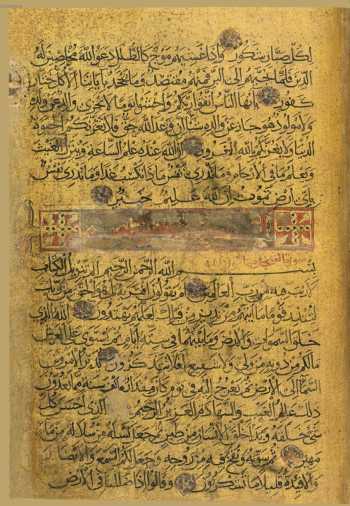 لكل صبار شكور واذا غشيهم موج كالظلل دعوا الله مخلصين له
الدين فلما نجيهم الى البر فمنهم مقتصد وما يجحد باياتنا الا كل ختار
كفور يا ايها الناس اتقوا ربكم واخشوا يوما لا يجزى والد عن ولده
ولا مولود هو جاز عن والده شيئا ان وعد الله حق فلا تغرنكم الحيوة
الدنيا ولا يغرنكم بالله الغرور ان الله عنده علم الساعة وينزل الغيث
ويعلم ما فى الارحام وما تدرى نفس ماذا تكسب غدا وما تدرى نفس
باى ارض تموت ان الله عليم خبير
بسم الله الرحمن الرحيم الم تنزيل الكتاب
لا ريب فيه من رب العالمين ام يقولون افتريه بل هو الحق من ربك
لتنذر قوما ما اتيهم من نذير من قبلك لعلهم يهتدون الله الذى
خلق السموات والارض وما بينهما فى ستة ايام ثم استوى على العرش
ما لكم من دونه من ولى ولا شفيع افلا تتذكرون يدبر الامر من
السماء الى الارض ثم يعرج اليه فى يوم كان مقداره الف سنة مما تعدون
ذلك عالم الغيب والشهادة العزيز الرحيم الذى احسن كل
شىء خلقه وبدا خلق الانسان من طين ثم جعل نسله من سلالة من ماء
مهين ثم سويه ونفخ فيه من روحه وجعل لكم السمع والابصار
والافئدة قليلا ما تشكرون وقالوا ااذا ضللنا فى الارض